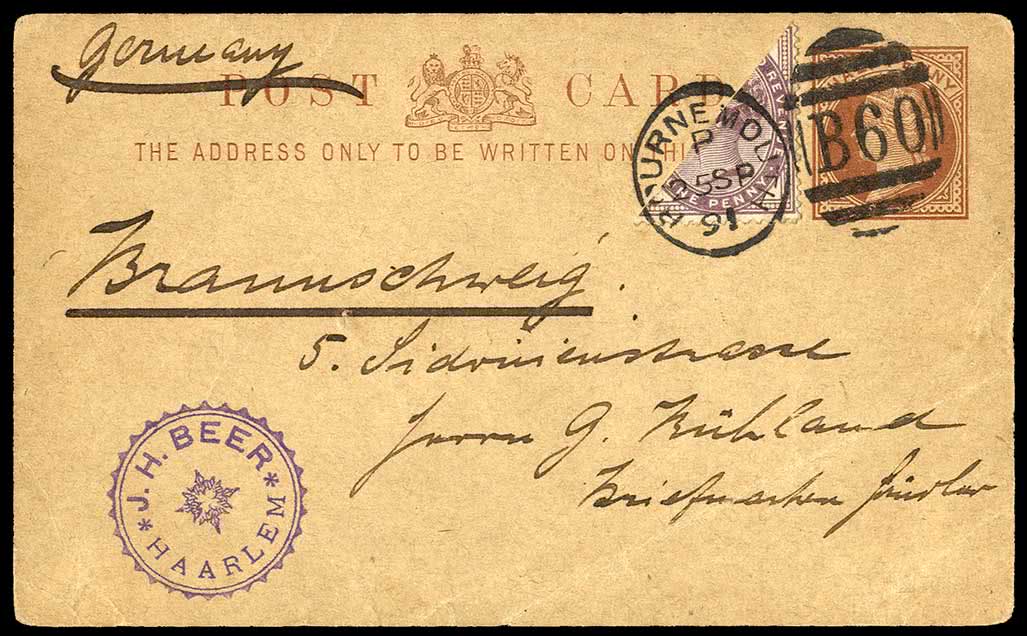 Germany
POST CARD
THE ADDRESS ONLY TO BE WRITTEN ON THI
REVENUE
ONE PENNY
BOURNEMOUTH
P
5 SP
91
B60
PENNY
Braunschweig.
5. Sidonienstrasse
Herrn G. Rühland
Briefmarken händler
* J. H. BEER *
HAARLEM